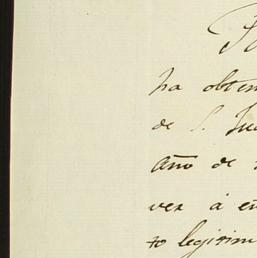 ha obten
de S. Jua
año de
vez á en
to legitim